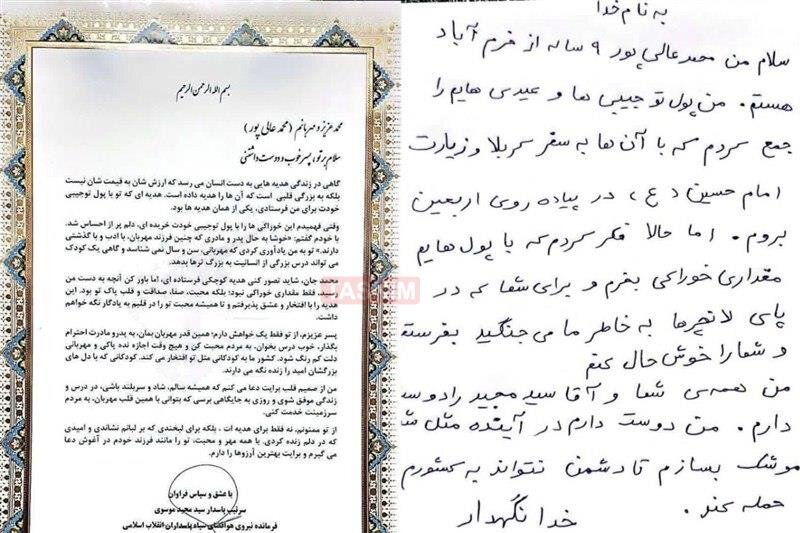 بسم الله الرحمن الرحیم
محمد عزیز و مهربانم (محمد عالی پور)
سلام بر تو، پسر خوب و دوست داشتنی
گاهی در زندگی هدیه هایی به دست انسان می رسد که ارزش شان به قیمت شان نیست
بلکه به بزرگی قلبی است که آن ها را هدیه داده است. هدیه ای که تو با پول توجیبی
خودت برای من فرستادی، یکی از همان هدیه ها بود.
وقتی فهمیدم این خوراکی ها را با پول توجیبی خودت خریده ای، دلم پر از احساس شد.
با خودم گفتم: «خوشا به حال پدر و مادری که چنین فرزند مهربان، با ادب و با گذشتی
دارند.» تو به من یادآوری کردی که مهربانی، سن و سال نمی شناسد و گاهی یک کودک
می تواند درس بزرگی از انسانیت به بزرگ ترها بدهد.
محمد جان، شاید تصور کنی هدیه کوچکی فرستاده ای، اما باور کن آنچه به دست من
رسید، فقط مقداری خوراکی نبود؛ بلکه محبت، صفا، صداقت و قلب پاک تو بود. این
هدیه را با افتخار و عشق پذیرفتم و تا همیشه محبت تو را در قلبم به یادگار نگه خواهم
داشت.
پسر عزیزم، از تو فقط یک خواهش دارم؛ همین قدر مهربان بمان، به پدر و مادرت احترام
بگذار، خوب درس بخوان، به مردم محبت کن و هیچ وقت اجازه نده پاکی و مهربانی
دلت کم رنگ شود. کشور ما به کودکانی مثل تو افتخار می کند. کودکانی که با دل های
بزرگشان امید را زنده نگه می دارند.
من از صمیم قلب برایت دعا می کنم که همیشه سالم، شاد و سربلند باشی، در درس و
زندگی موفق شوی و روزی به جایگاهی برسی که بتوانی با همین قلب مهربان، به مردم
سرزمینت خدمت کنی.
از تو ممنونم، نه فقط برای هدیه ات ، بلکه برای لبخندی که بر لبانم نشاندی و امیدی
که در دلم زنده کردی. با همه مهر و محبت، تو را مانند فرزند خودم در آغوش دعا
می گیرم و برایت بهترین آرزوها را دارم.
با عشق و سپاس فراوان
سرتیپ پاسدار سید مجید موسوی
فرمانده نیروی هوافضای سپاه پاسداران انقلاب اسلامی
TASNIM
به نام خدا
سلام من محمد عالی پور ۹ ساله از خرم آباد
هستم. من پول تو جیبی ها و عیدی هایم را
جمع کردم که با آن ها به سفر کربلا و زیارت
امام حسین (ع) ، در پیاده روی اربعین
بروم. اما حالا فکر کردم که با پول هایم
مقداری خوراکی بخرم و برای شما که در
پای لانچرها به خاطر ما می جنگید بفرستم
و شما را خوش حال کنم
من همه ی شما و آقا سید مجید را دوست
دارم . من دوست دارم در آینده مثل
موشک بسازم تا دشمن نتواند به کشورم
حمله کند.
خدا نگهدار